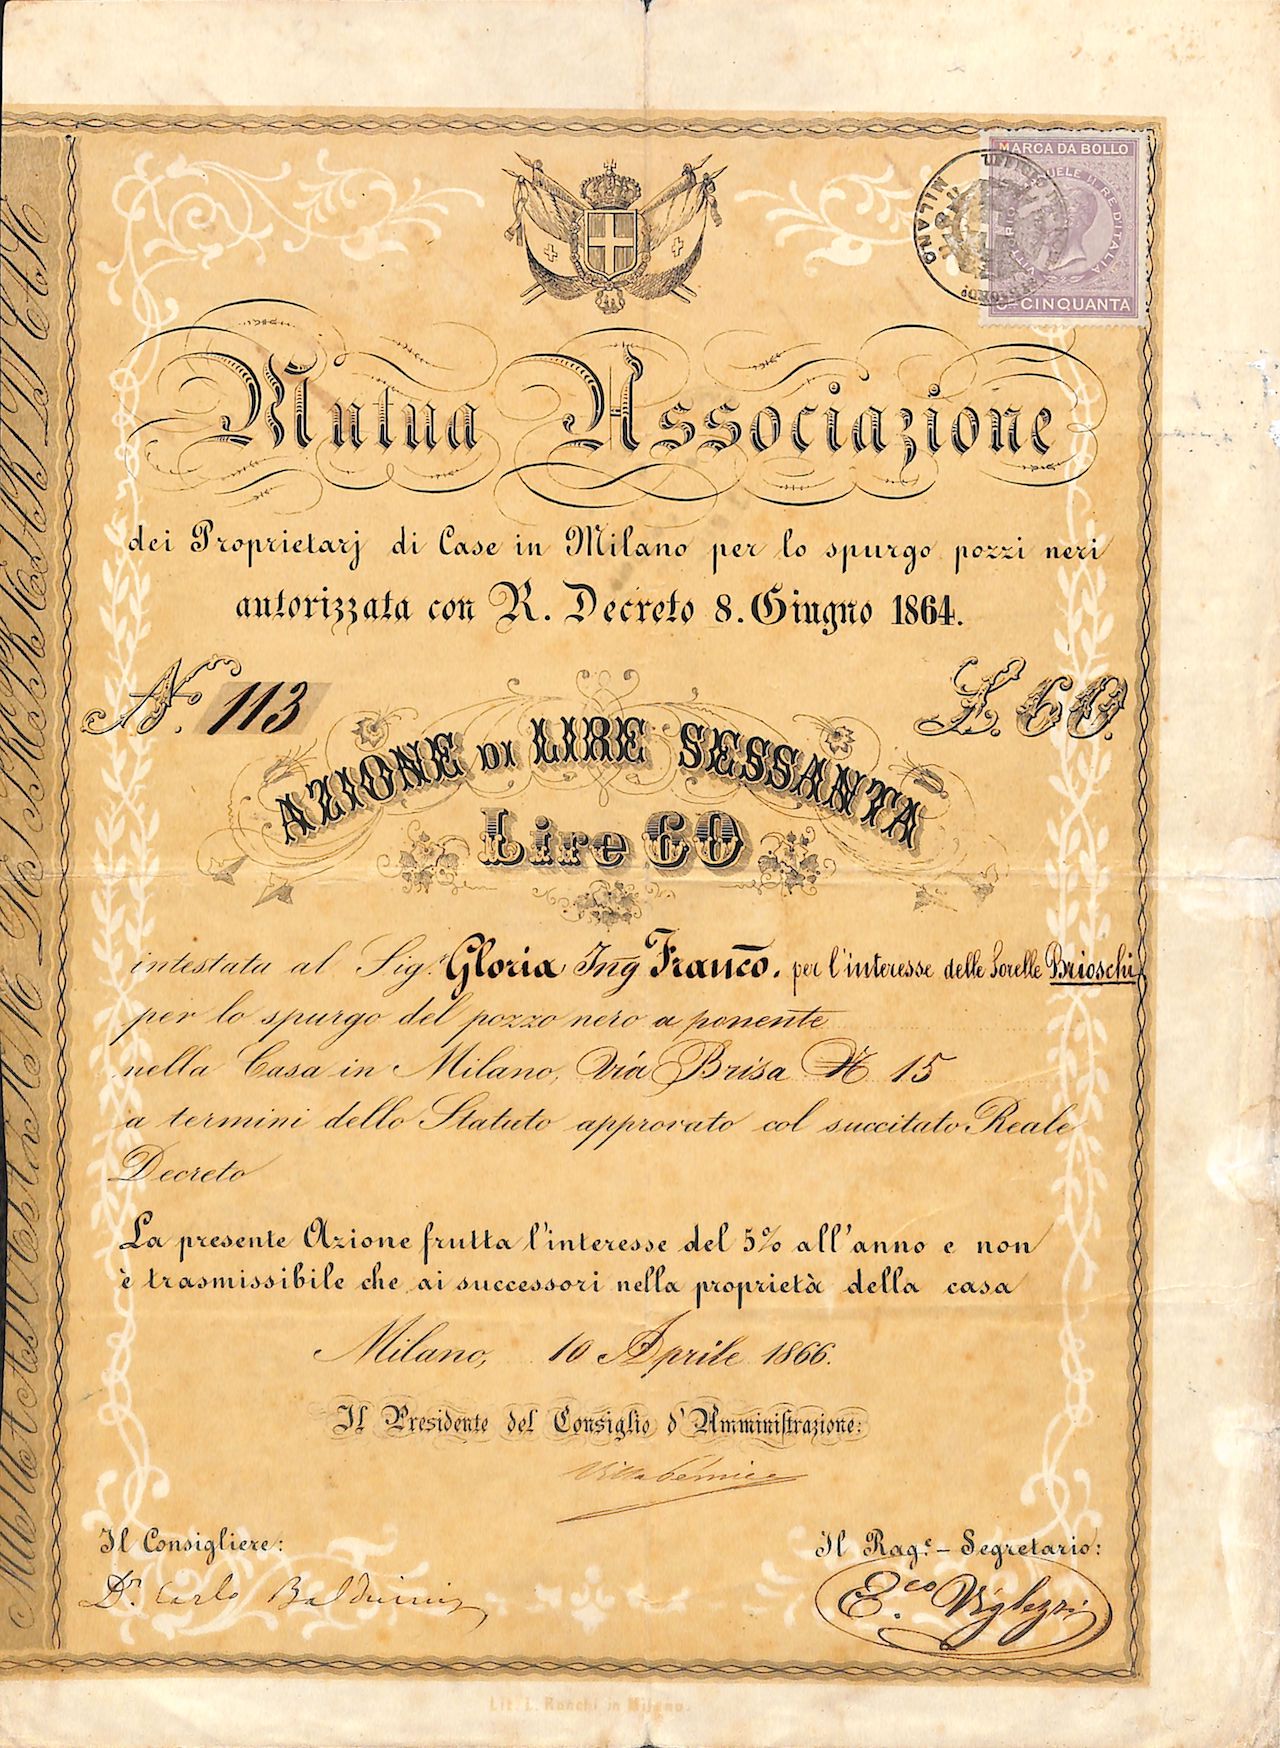 MARCA DA BOLLO
VITTORIO EMANUELE II RE D'ITALIA
Cmi CINQUANTA
MILANO
Mutua Associazione
dei Proprietarj di Case in Milano per lo spurgo pozzi neri
autorizzata con R. Decreto 8. Giugno 1864.
N. 113
L. 60.
AZIONE DI LIRE SESSANTA
Lire 60
intestata al Sig.r Gloria Ing Franco. per l'interesse delle Sorelle Brioschi
per lo spurgo del pozzo nero a ponente
nella Casa in Milano, Via Brisa N 15
a termini dello Statuto approvato col succitato Reale
Decreto
La presente Azione frutta l'interesse del 5% all'anno e non
è trasmissibile che ai successori nella proprietà della casa
Milano, 10 Aprile 1866.
Il Presidente del Consiglio d'Amministrazione:
Il Consigliere:
Il Rag.e - Segretario:
Dr. Carlo Balduini
E.co Viglezzi
Lit. L. Ronchi in Milano.